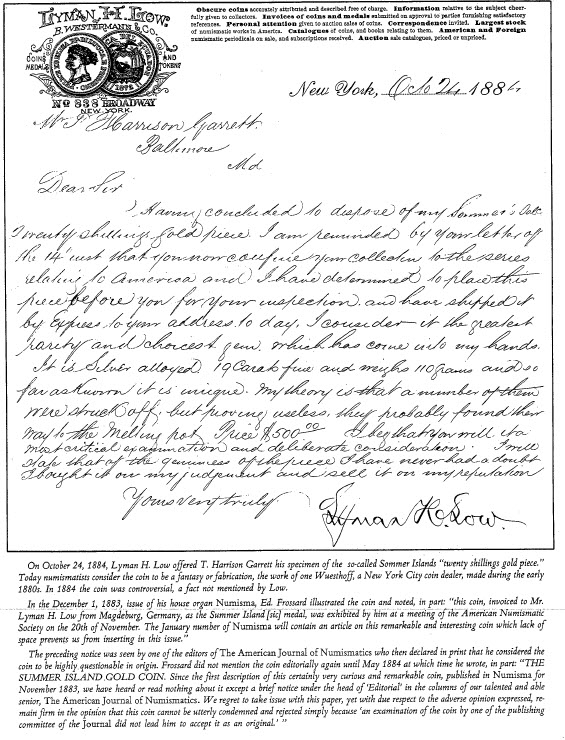 LYMAN H. LOW.
B. WESTERMANN & CO.
COINS MEDALS AND TOKENS
1872
No 838 BROADWAY
NEW YORK.
Obscure coins accurately attributed and described free of charge. Information relative to the subject cheer-
fully given to collectors. Invoices of coins and medals submitted on approval to parties furnishing satisfactory
references. Personal attention given to auction sales of coins. Correspondence invited. Largest stock
of numismatic works in America. Catalogues of coins, and books relating to them. American and Foreign
numismatic periodicals on sale, and subscriptions received. Auction sale catalogues, priced or unpriced.
New York, Oct 24 1884
Mr T. Harrison Garrett.
Baltimore
Md.
Dear Sir
Having concluded to dispose of my Sommer's
Twenty shillings gold piece I am reminded by your letter of
the 14" inst that you now confine your collection to the series
relating to America and I have determined to place this
piece before you for your inspection and have shipped it
by Express to your address to day. I consider it the greatest
rarity and choicest gem which has come into my hands.
It is Silver alloyed 19 Carats fine and weighs 110 grams and so
far as known it is unique. My theory is that a number of them
were struck off, but proving useless, they probably found their
way to the melting pot. Price $,500.00 I beg that you will
most critical examination and deliberate consideration. I will
state that of the genuiness of the piece I have never had a doubt
I bought it on my judgment and sell it on my reputation
Yours very truly
Lyman H. Low.
On October 24, 1884, Lyman H. Low offered T. Harrison Garrett his specimen of the so-called Sommer Islands "twenty shillings gold piece."
Today numismatists consider the coin to be a fantasy or fabrication, the work of one Wuesthoff, a New York City coin dealer, made during the early
1880s. In 1884 the coin was controversial, a fact not mentioned by Low.
In the December 1, 1883, issue of his house organ Numisma, Ed. Frossard illustrated the coin and noted, in part: "this coin, invoiced to Mr.
Lyman H. Low from Magdeburg, Germany, as the Summer Island [sic] medal, was exhibited by him at a meeting of the American Numismatic
Society on the 20th of November. The January number of Numisma will contain an article on this remarkable and interesting coin which lack of
space prevents us from inserting in this issue."
The preceding notice was seen by one of the editors of The American Journal of Numismatics who then declared in print that he considered the
coin to be highly questionable in origin. Frossard did not mention the coin editorially again until May 1884 at which time he wrote, in part: "THE
SUMMER ISLAND GOLD COIN. Since the first description of this certainly very curious and remarkable coin, published in Numisma for
November 1883, we have heard or read nothing about it except a brief notice under the head of 'Editorial' in the columns of our talented and able
senior, The American Journal of Numismatics. We regret to take issue with this paper, yet with due respect to the adverse opinion expressed, re-
main firm in the opinion that this coin cannot be utterly condemned and rejected simply because 'an examination of the coin by one of the publishing
committee of the Journal did not lead him to accept it as an original.' "